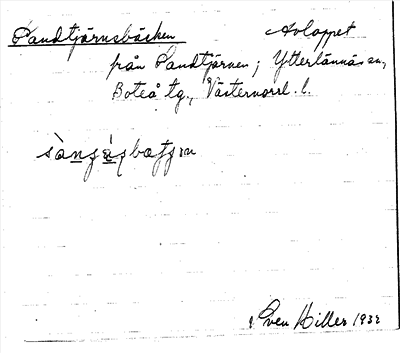 Sandtjärnsbäcken Avloppet
från Sandtjärnen; Ytterlännäs sn,
Boteå tg., Västernorrl. l.
Sven Hiller 1932